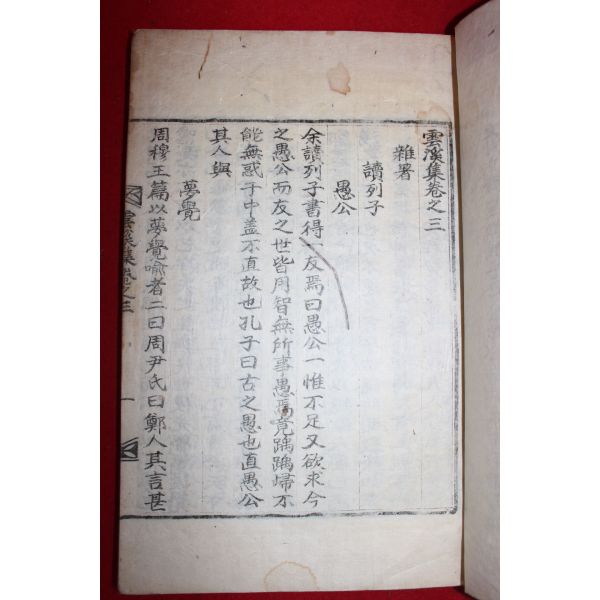 雲溪集卷之三
雜著
讀列子
愚公
余讀列子書得一友焉曰愚公一惟不足又欲求今
之愚公而友之世皆用智無所事愚焉竟踽踽歸不
能無惑于中盖不直故也孔子曰古之愚也直愚公
其人與
夢覺
周穆王篇以夢覺喩者二曰周尹氏曰鄭人其言甚
雲溪集卷之三 一